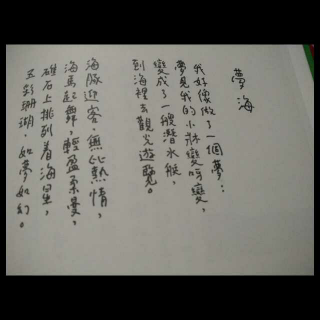 夢海
我好像做了一個夢:
夢見我的小牀變呀變,
變成了一艘潛水艇,
到海裡去觀光遊覽。
海豚迎客,無比熱情,
海馬起舞,輕盈柔曼,
礁石上排列着海星,
五彩珊瑚,如夢如幻。